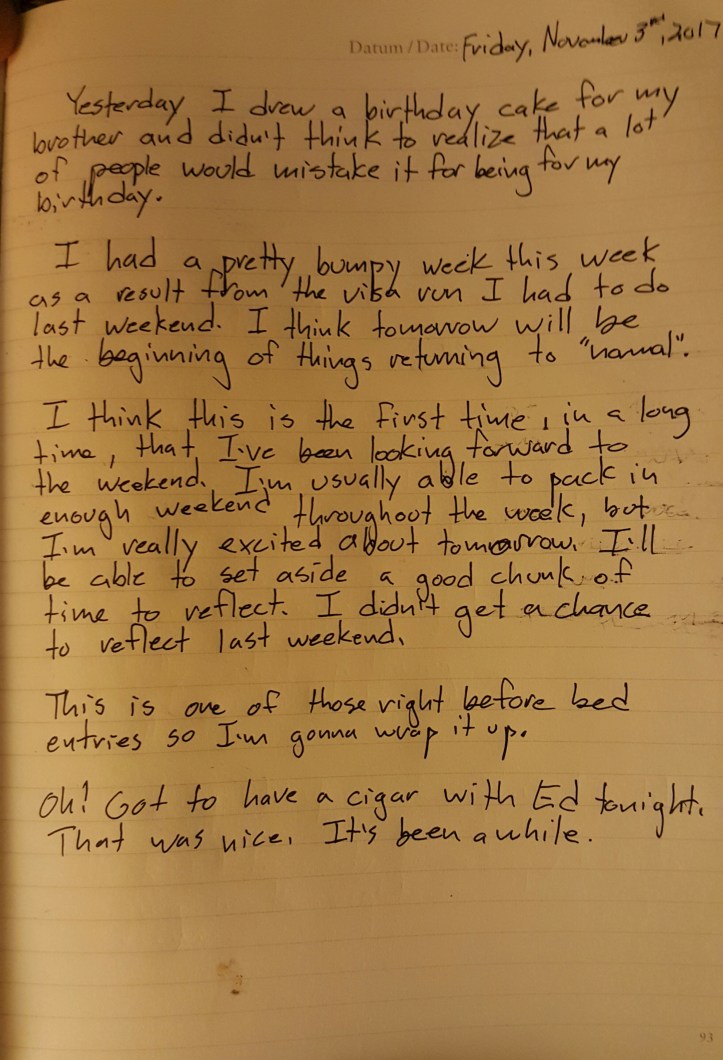 Datum / Date: Friday, November 3rd, 2017
Yesterday I drew a birthday cake for my
brother and didn't think to realize that a lot
of people would mistake it for being for my
birthday.
I had a pretty bumpy week this week
as a result from the visa run I had to do
last weekend. I think tomorrow will be
the beginning of things returning to "normal".
I think this is the first time, in a long
time, that I've been looking forward to
the weekend. I'm usually able to pack in
enough weekend throughout the week, but
I'm really excited about tomorrow. I'll
be able to set aside a good chunk of
time to reflect. I didn't get a chance
to reflect last weekend.
This is one of those right before bed
entries so I'm gonna wrap it up.
Oh! Got to have a cigar with Ed tonight.
That was nice. It's been awhile.
93